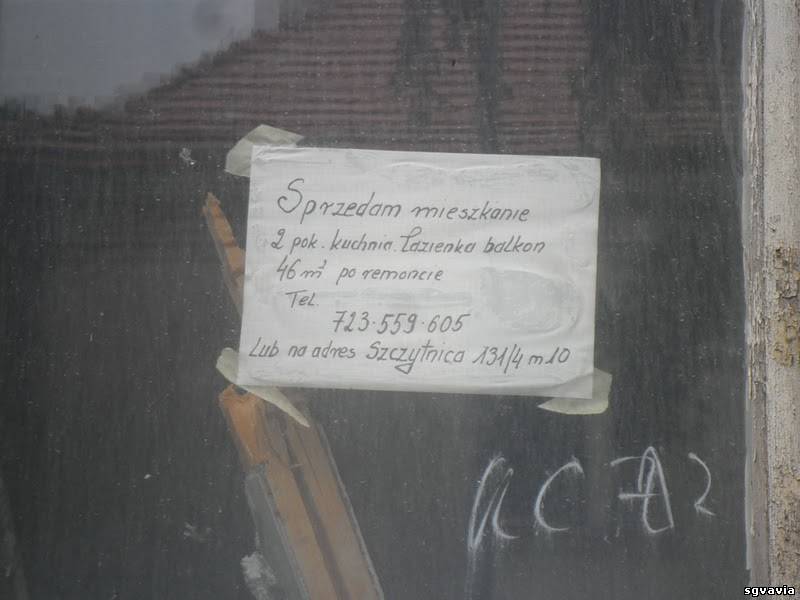 Sprzedam mieszkanie
2 pok. kuchnia. Łazienka balkon
46 m² po remoncie
Tel.
723·559·605
Lub na adres Szczytnica 131/4 m 10
sgvavia